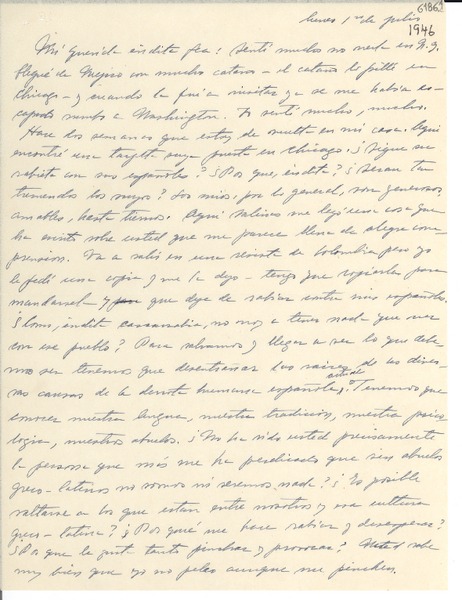 61862
lunes 1º de julio
1946
Mi querida indita fea: Sentí mucho no verla en N.Y.
Llegué de Mejico con mucho catarro - el catarro lo pillé en
Chicago - y cuando la fui a visitar ya se me había es-
capado rumbo a Washington. Lo sentí mucho, mucho.
Hace dos semanas que estoy de vuelta en mi casa. Aquí
encontré una tarjeta suya puesta en Chicago. ¿Sigue su
rabieta con sus españoles? ¿Por qué, indita? ¿Serán tan
tremendos los suyos? Los míos, por lo general, son generosos,
amables, hasta tiernos. Aquí Salinas me leyó una cosa que
ha escrito sobre usted que me parece llena de alegre com-
prensión. Va a salir en una revista de Colombia pero yo
le pedí una copia y me la dejó - tengo que copiarla para
mandársela y que deje de rabiar contra mis españoles.
¿Cómo, indita cascarrabia, no vas a tener nada que ver
con ese pueblo? Para salvarnos y llegar a ser lo que debe-
mos ser tenemos que desentrañar las raíces de las diver-
sas causas de la derrota humana española, . Tenemos que
conocer nuestra lengua, nuestra tradición, nuestra psico-
logía, nuestros abuelos. ¿No ha sido usted precisamente
la persona que más me ha predicado que sin abuelos
greco-latinos no somos ni seremos nada? ¿Es posible
saltarse a los que están entre nosotros y esa cultura
greco-latina? ¿Por qué me hace rabiar y desespera?
¿Por qué le gusta tanto pinchar y provocar? Usted sabe
muy bien que yo no peleo aunque me pinchen.